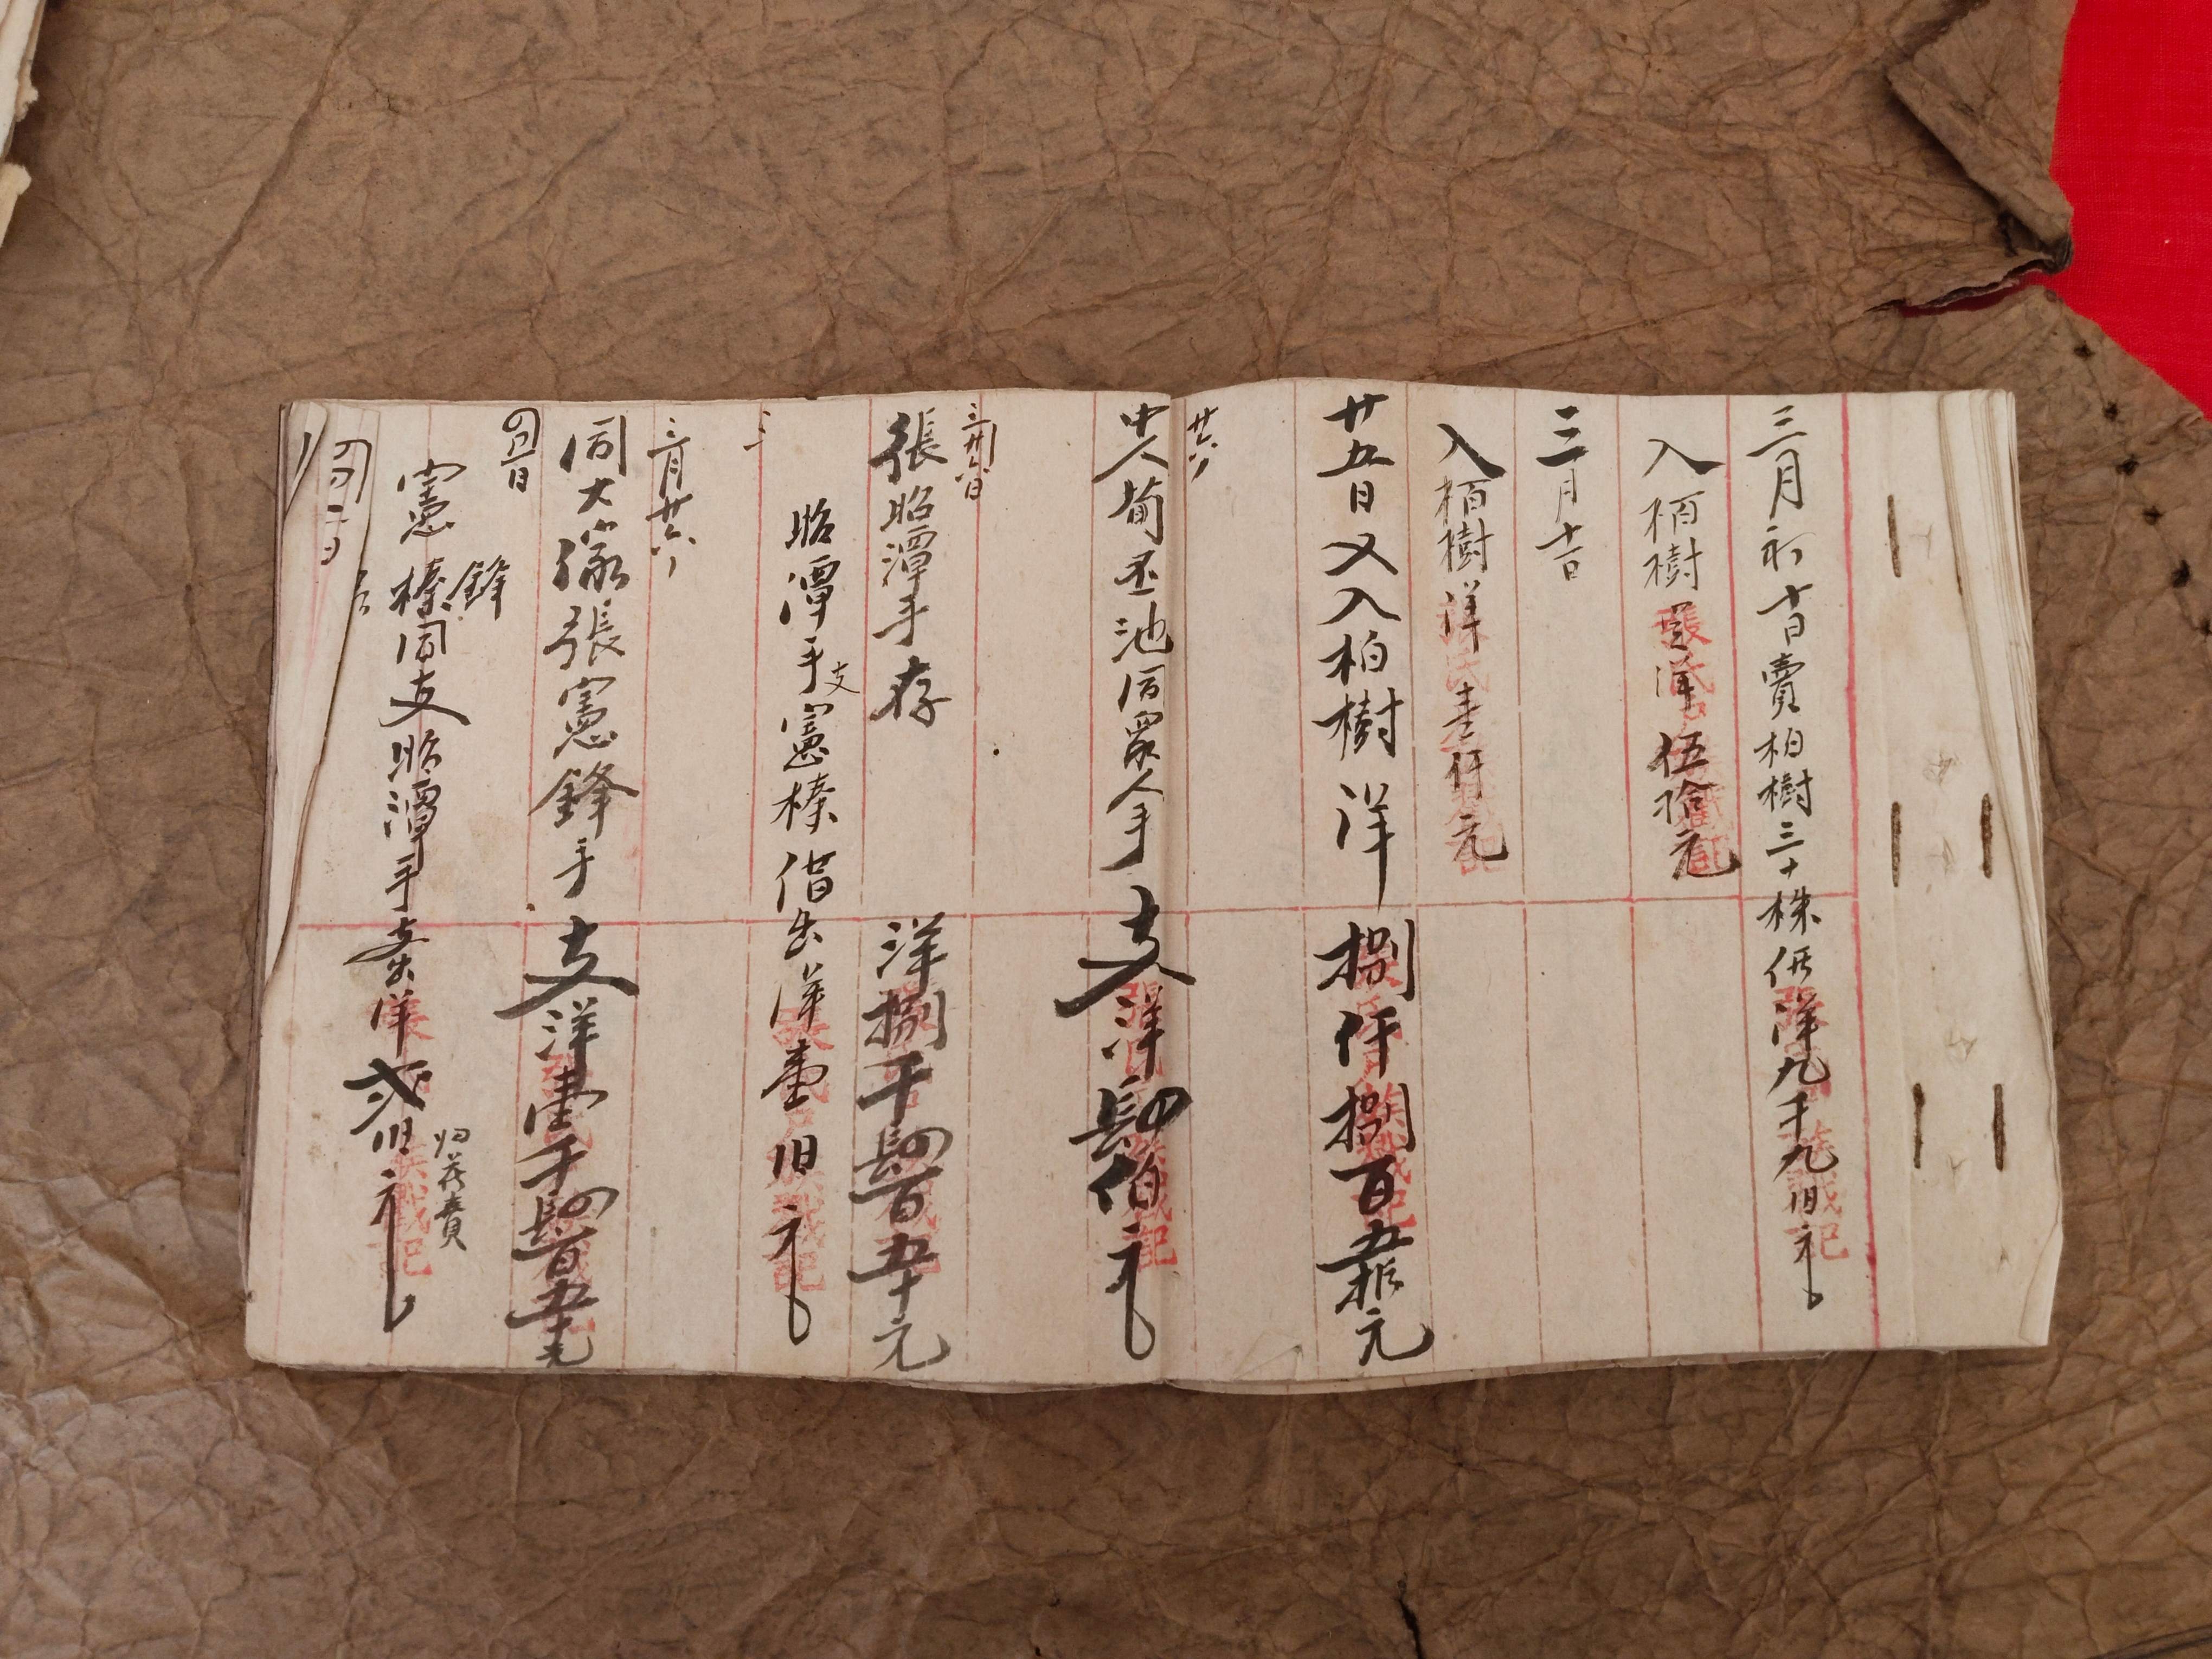 三月初十日賣柏樹三十株价洋九千九百元
入栢樹洋伍拾元
三月十日
入栢樹洋壹仟元
廿五日又入柏樹洋捌仟捌百五拾元
廿六
中人荀丞池同眾人手支洋肆佰元
三月廿六日
張昭潭手存洋捌千肆百五十元
三
昭潭手支憲榛借出洋壹百元
三月廿六
同大家張憲鋒手支洋壹千肆百五十元
四月一日
憲榛鋒同支昭潭手支出洋貳百元
归花費
四月二日